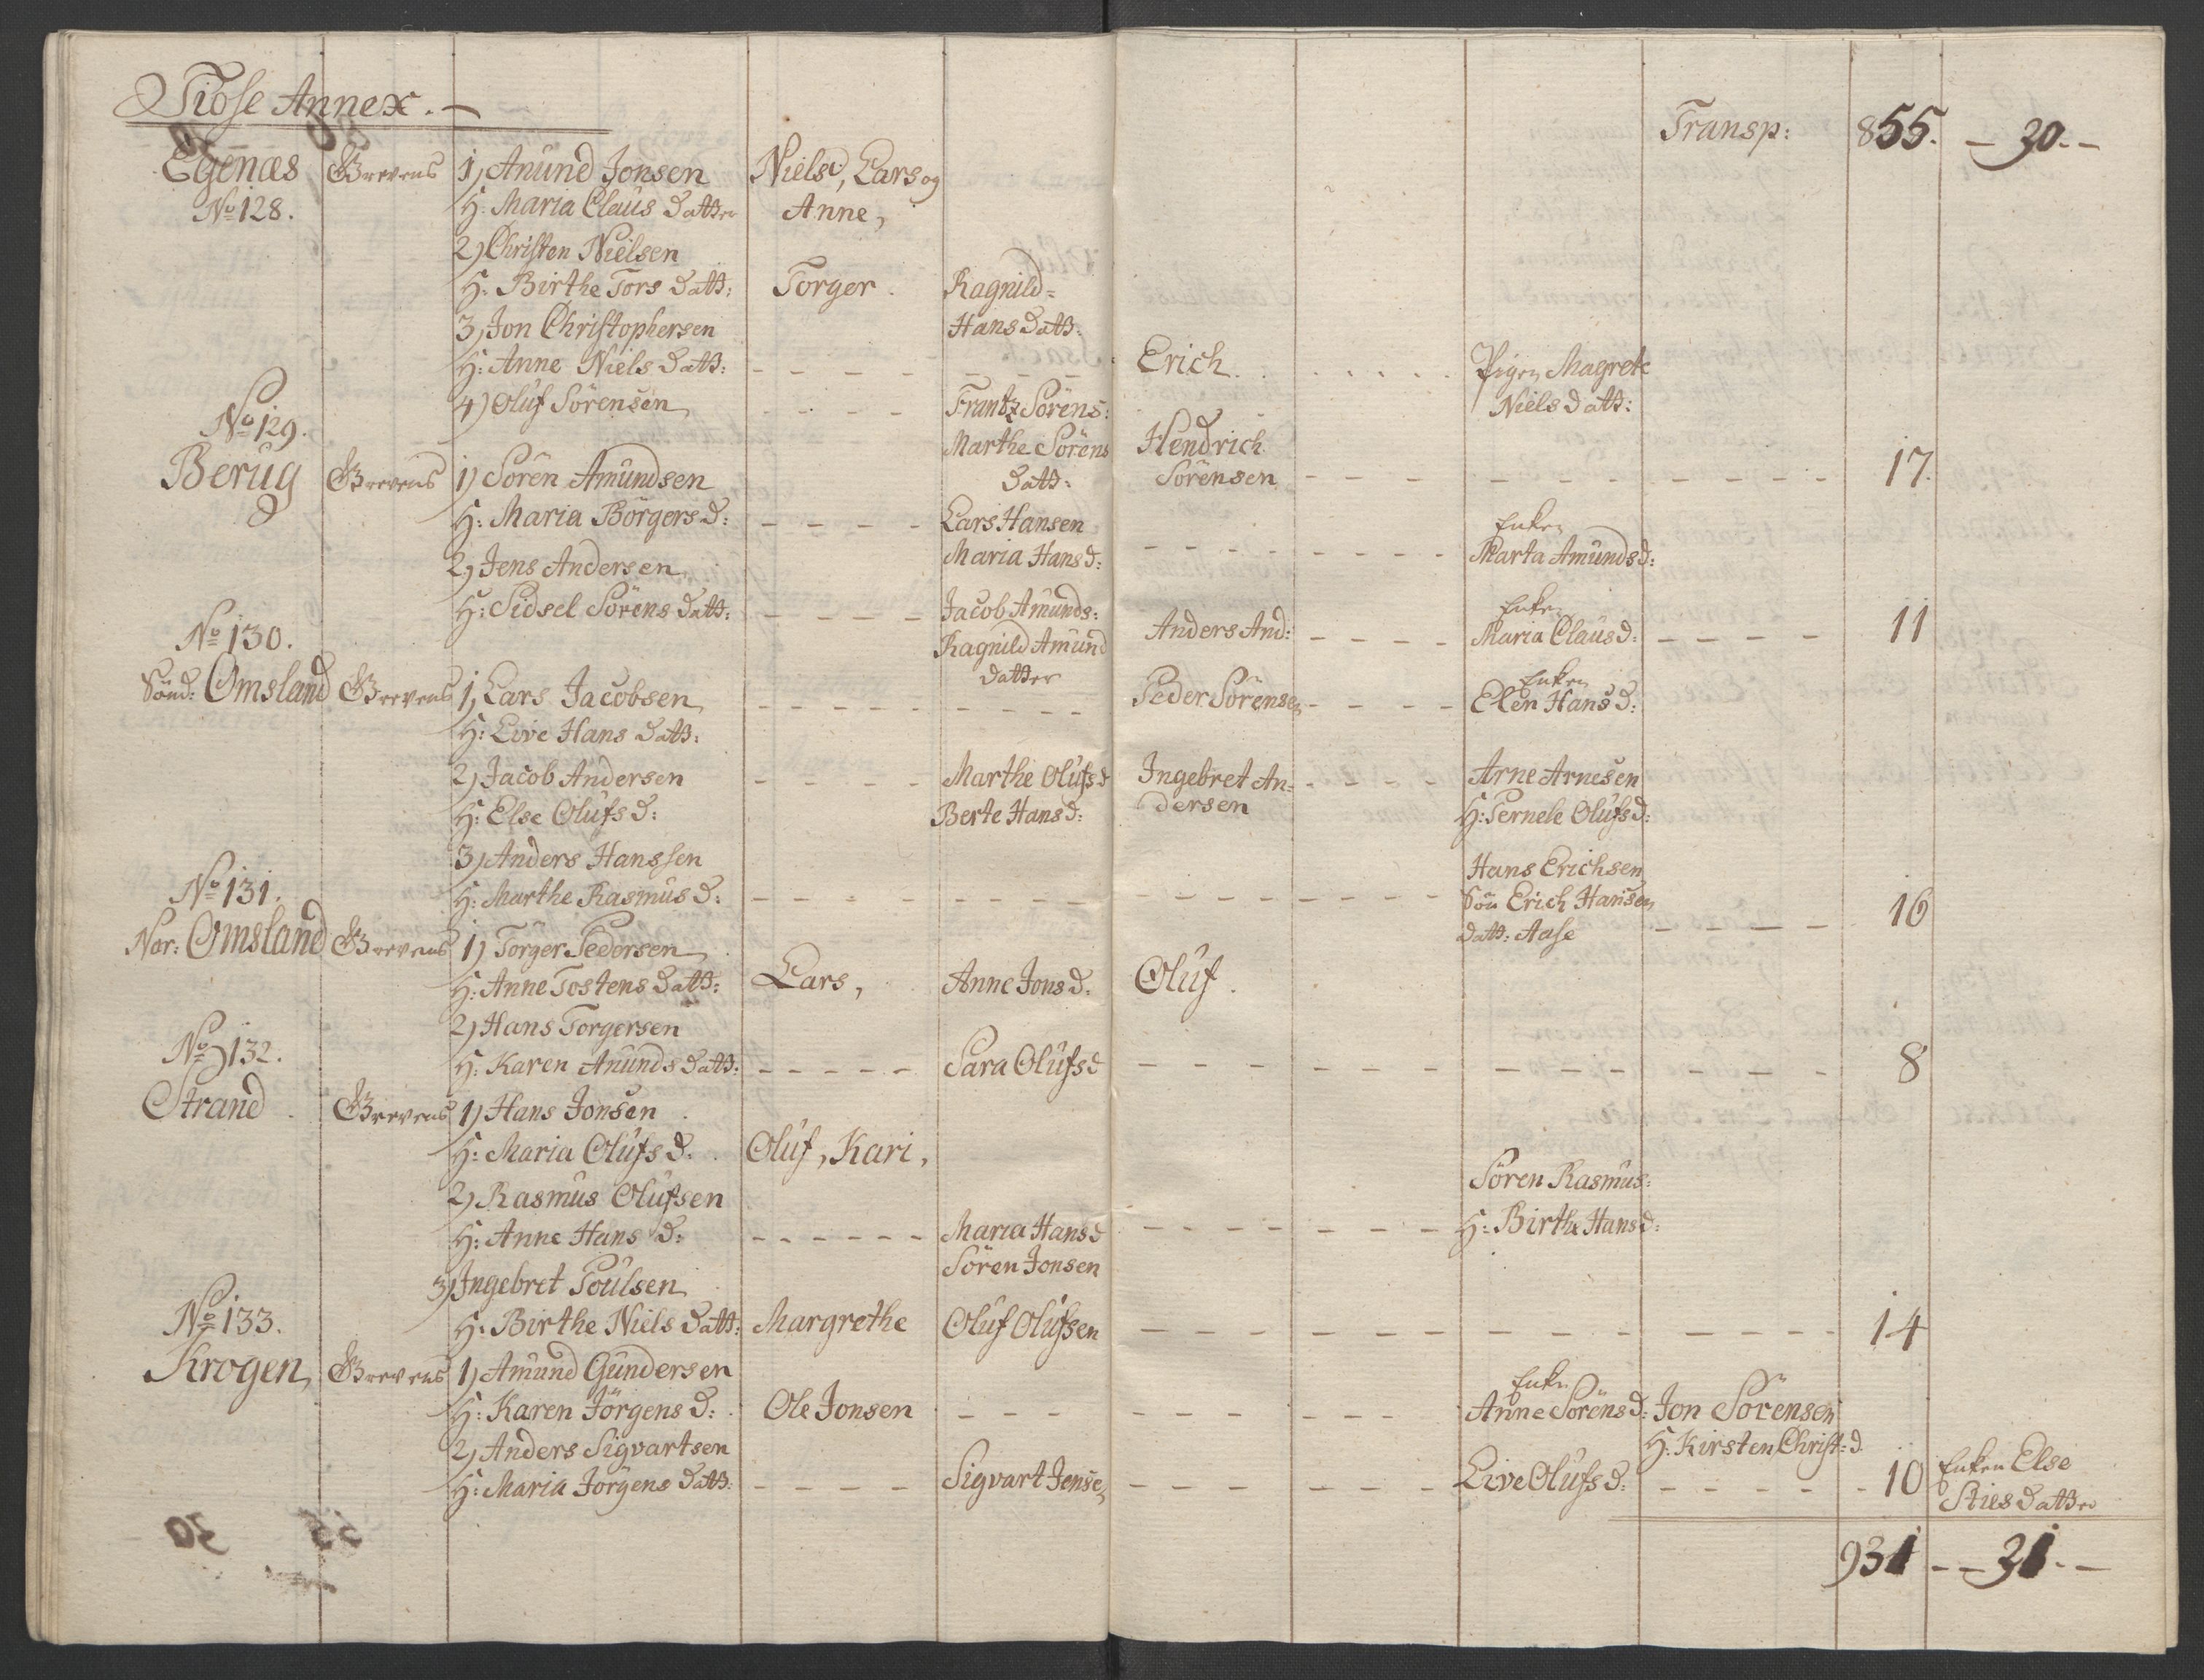 Tiose Annex.
Transp: 855. - 30. -
Egenæs Grevens 1) Anund Jonsen Niels, Lars og
No 128. H: Maria Claus Datter Anne,
2) Christen Nielsen
H: Birthe Tors Datt: Torger. Ragnild
Hans Datt:
3) Jon Christophersen
H: Anne Niels Datt: Erich. Pigen Magrete
Niels Datt:
4) Oluf Sörensen Frantz Sörens:
No 129. Marthe Sörens Hendrich
Datt: Sörensen 17.
Berug Grevens 1) Soren Amundsen
H: Maria Börgers D: Lars Hansen Enken
2) Jens Andersen Maria Hans D: Marta Amunds D:
H: Sidsel Sörens Datt: Jacob Amunds: Enken
No 130. Ragnild Amund Anders And: Maria Claus D: 11
datter
Sönd: Omsland Grevens 1) Lars Jacobsen Peder Sörensen Enken
Elen Hans D:
H: Live Hans Datt:
2) Jacob Andersen Marthe Olufs D Ingebret An- Arne Arnesen
H: Else Olufs D: Berte Hans D: dersen H: Pernele Olufs D:
3) Anders Hanssen Hans Erichsen
No 131. H: Marthe Rasmus D: Sön Erich Hansen 16
Datt: Aase
Nor: Omsland Grevens 1) Torger Pedersen
H: Anne Tostens Datt: Lars, Anne Jons D: Oluf.
2) Hans Torgersen
No 132. H: Karen Anunds Datt: Sara Olufs D 8
Strand Grevens 1) Hans Jonsen
H: Maria Olufs D. Oluf, Kari,
2) Rasmus Olufsen Sören Rasmus:
H: Anne Hans D: Maria Hans D H: Birthe Hans D:
Sören Jonsen
3) Ingebret Poulsen
No 133. H: Birthe Niels Datt: Margrethe Oluf Olufsen 14
Krogen Grevens 1) Amund Gundersen
Enke
H: Karen Jörgens D: Ole Jonsen Anne Sörens D: Jon Sörensen
2) Anders Sigvartsen H: Kirsten Christ: D
H: Maria Jörgens Datt: Sigvart Jensen Live Olufs D: 10 Enken Else
Sties Datter
931 - - 31. -